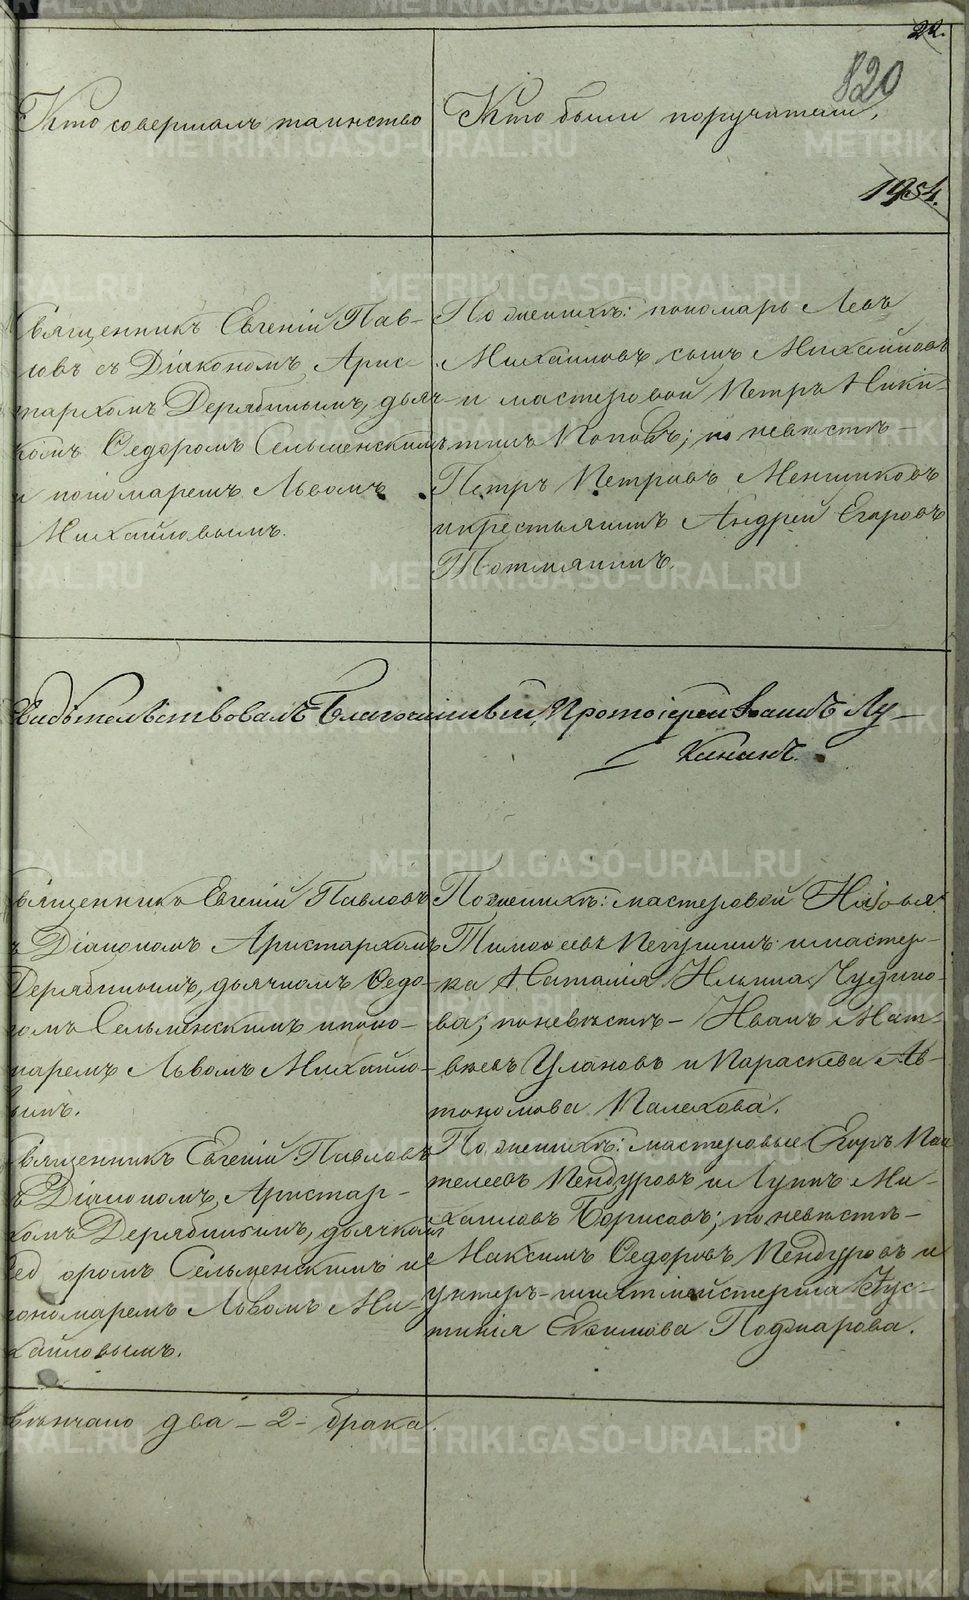 22.
820
Кто совершалъ таинство
Кто были поручители,
1954.
Священникъ Евгеній Пав-
ловъ съ Діакономъ Арис-
тархомъ Дерябинымъ, дьяч-
комъ Ѳедоромъ Сельменскимъ
и пономаремъ Львомъ
Михайловымъ.
По женихѣ: пономарь Левъ
Михаиловъ сынъ Михайловъ
и мастеровой Петръ Ники-
тинъ Поповъ; по невѣстѣ –
Петръ Петровъ Менщиковъ
и крестьянинъ Андрей Егоровъ
Тотмянинъ.
Свидѣтельствовалъ Благочинный, Протоіерей Іоаннъ Лу-
канинъ.
Священникъ Евгеній Павловъ
ъ Діакономъ Аристархомъ
Дерябинымъ, дьячкомъ Ѳедо-
ромъ Сельменскимъ и поно-
маремъ Львомъ Михайло-
вымъ.
По женихѣ: мастеровой
Тимоѳеевъ и мастер-
ка Наталія Ильина Чудино-
ва; по невѣстѣ – Иванъ Мат-
вѣевъ Улановъ и Параскева Ав-
тономова Палехова.
Священникъ Евгеній Павловъ
ъ Діакономъ Аристар-
хомъ Дерябинымъ, дьячкомъ
Ѳедоромъ Сельменскимъ и
пономаремъ Львомъ Ми-
хайловымъ.
По женихѣ: мастеровые Егоръ Пан
телеевъ Пендуровъ и Лупъ Ми-
хаиловъ Борисовъ; по невѣстѣ –
Максимъ Ѳедоровъ Пендуровъ и
унтеръ-шихтмейстерша Іус-
тинія Евѳимова Поджарова.
вѣнчано два – 2 – брака.
METRIKI.GASO-URAL.RU